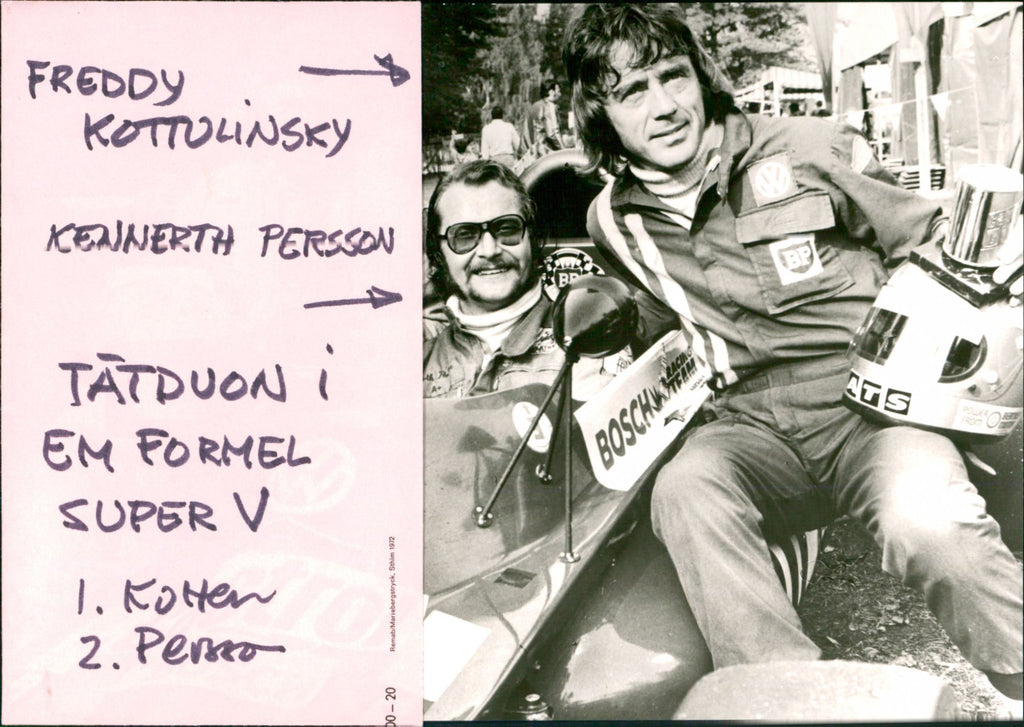 FREDDY
KOTTULINSKY
KENNERTH PERSSON
TÄTDUON i
EM FORMEL
SUPER V
1. Kotten
2. Persso
Stblm 1972
00 – 20
BP
BP
BOSCH
RACING
TEAM
ATS
POWER
FROM